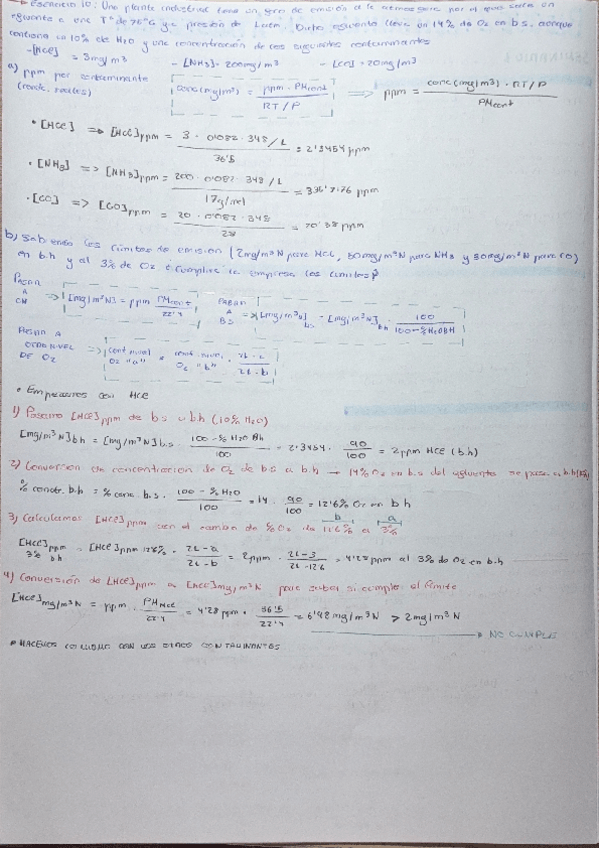 → Escenario 10: Una planta industrial tiene un foco de emisión a la atmósfera por el que sale un
efluente a una Tª de 75°C y a presión de 1 atm. Dicho efluente lleva un 14% de O2 en b.s, aunque
contiene un 10% de H2O y una concentración de los siguientes contaminantes
-[HCl] = 3mg/m³ - [NH3] = 200mg/m³ - [CO] = 20mg/m³
a) ppm por contaminante
(condc. reales)
conc(mg/m³) = ppm · PMcont / RT/P => ppm = conc(mg/m³) · RT/P / PMcont
• [HCl] => [HCl]ppm = 3 · 0'082 · 348/1 / 36'5 = 2'3454 ppm
• [NH3] => [NH3]ppm = 200 · 0'082 · 348/1 / 17g/mol = 336'7.76 ppm
• [CO] => [CO]ppm = 20 · 0'082 · 348 / 28 = 20'38 ppm
b) Sabiendo los límites de emisión (2mg/m³N para HCl, 50mg/m³N para NH3 y 50mg/m³N para CO)
en b.h y al 3% de O2 ¿Cumple la empresa los límites?
PASAR A CN => [mg/m³N] = ppm · PMcont / 22'4 PASAR A BS => [mg/m³N]bs = [mg/m³N]bh · 100 / 100-%H2OBH
PASAR A OTRO NIVEL DE O2 => cont nivel O2 "a" = cont. nivel O2 "b" · 21-a / 21-b
• Empezamos con HCl
1) Pasamos [HCl]ppm de bs a bh (10% H2O)
[mg/m³N]bh = [mg/m³N]b.s. · 100-% H2O Bh / 100 = 2'3454 · 90 / 100 = 2ppm HCl (bh)
2) Conversión de concentración de O2 de bs a b.h → 14% O2 en b.s del efluente se pasa a b.h
% conctr. b.h = % conc. b.s. · 100 - % H2O / 100 = 14 · 90 / 100 = 12'6% O2 en bh
3) Calculamos [HCl]ppm con el cambio de % O2 de 12'6% a 3%
b a
[HCl]ppm 3% bh = [HCl]ppm 12'6% · 21-a / 21-b = 2ppm · 21-3 / 21-12'6 = 4'28 ppm al 3% de O2 en b.h
4) Conversión de [HCl]ppm a [HCl]mg/m³N para saber si cumple el límite
[HCl]mg/m³N = ppm · PM HCl / 22'4 = 4'28 ppm · 36'5 / 22'4 = 6'98 mg/m³N > 2mg/m³N
→ NO CUMPLE
* HACEMOS LO MISMO CON LOS OTROS CONTAMINANTES